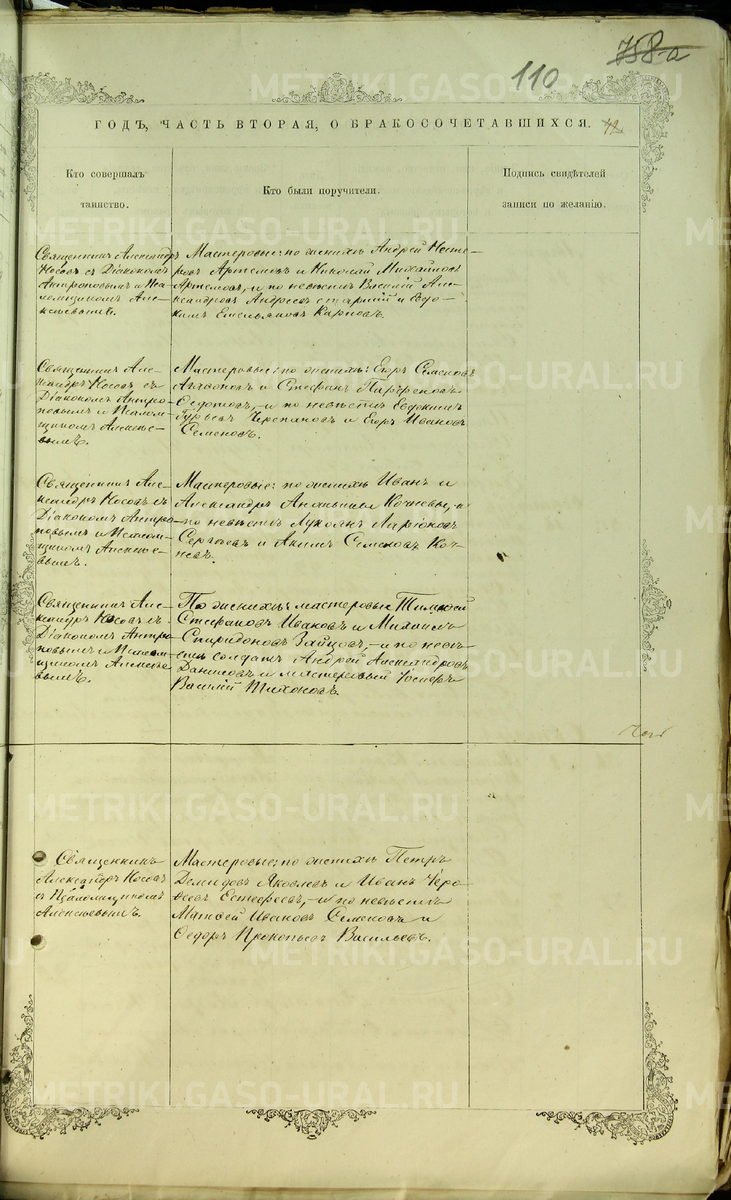 758-а
110
ГОДЪ, ЧАСТЬ ВТОРАЯ, О БРАКОСОЧЕТАВШИХСЯ.
Кто совершалъ
таинство.
Кто были поручители.
Подпись свидѣтелей
записи по желанію.
Священникъ Александръ
Носовъ съ Діакономъ
Антроповымъ и Пса-
ломщикомъ Алек-
сѣевымъ.
Мастеровые: по женихѣ Андрей Несте-
ровъ Артемовъ и Николай Михайловъ
Артемовъ, и по невѣстѣ Василій Але-
ксандровъ Андреевъ старшій и
Емельяновъ Карповъ.
Священникъ Але-
ксандръ Носовъ съ
Діакономъ Антро-
повымъ и Псалом-
щикомъ Алексѣе-
вымъ.
Мастеровые: по женихѣ: Егоръ Семеновъ
и Стефанъ Парфеновъ
Федотовъ, и по невѣстѣ Евдокимъ
Гурьевъ Черепановъ и Егоръ Ивановъ
Семеновъ.
Священникъ Але-
ксандръ Носовъ съ
Діакономъ Антро-
повымъ и Псалом-
щикомъ Алексѣе-
вымъ.
Мастеровые: по женихѣ Иванъ и
Александръ Ананьины Кочневы, и
по невѣстѣ Лукоянъ Ларіоновъ
Сергѣевъ и Акимъ Семеновъ Коч-
невъ.
Священникъ Але-
ксандръ Носовъ съ
Діакономъ Антро-
повымъ и Псалом-
щикомъ Алексѣе-
вымъ.
По женихѣ: мастеровые Тимофей
Стефановъ Ивановъ и Михаилъ
Спиридоновъ Зайцовъ, и по невѣ-
стѣ солдатъ Андрей Александровъ
Даниловъ и мастеровый
Василій Тихоновъ.
Священникъ
Александръ Носовъ
съ Псаломщикомъ
Алексѣевымъ.
Мастеровые: по женихѣ Петръ
Демидовъ Яковлевъ и Иванъ
и по невѣстѣ
Матвей Ивановъ Семеновъ и
Федоръ Прокопьевъ Васильевъ.
METRIKI.GASO-URAL.RU
METRIKI.GASO-URAL.RU
METRIKI.GASO-URAL.RU
METRIKI.GASO-URAL.RU
METRIKI.GASO-URAL.RU
METRIKI.GASO-URAL.RU
METRIKI.GASO-URAL.RU
METRIKI.GASO-URAL.RU